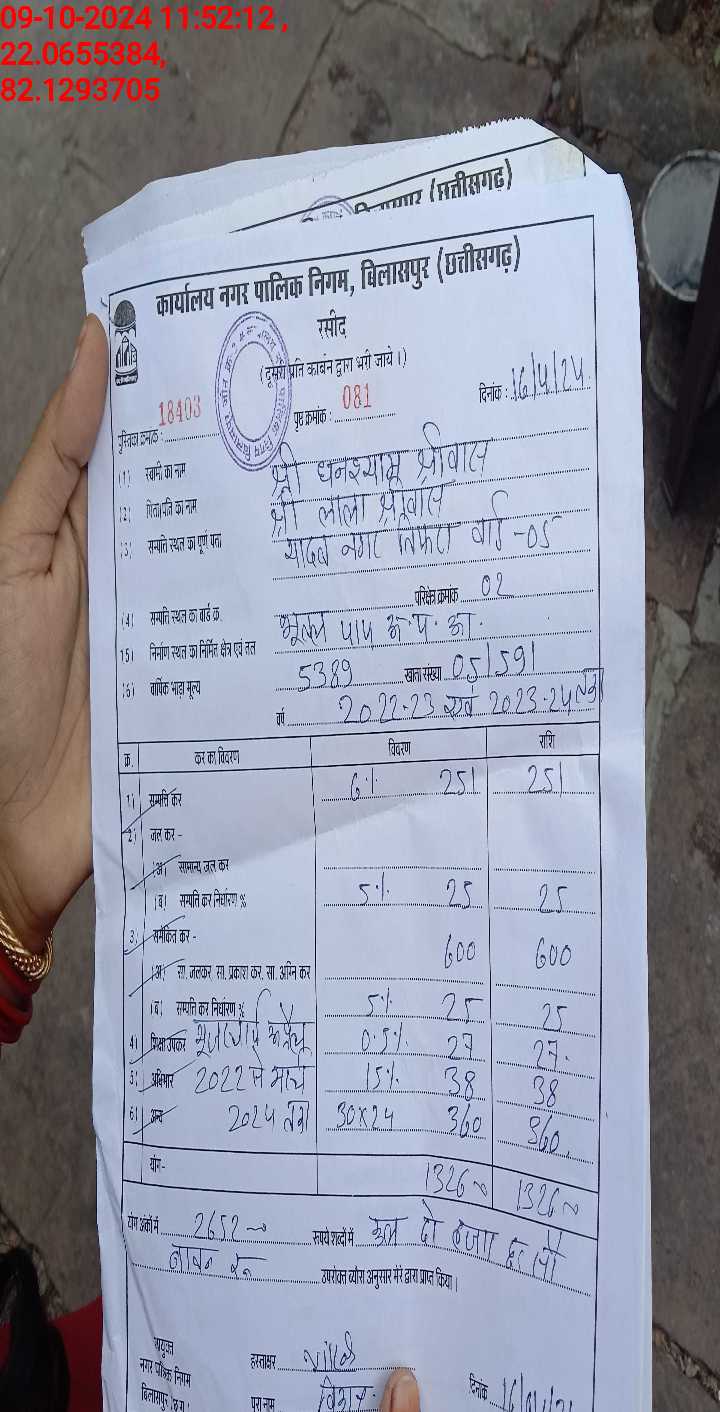 09-10-2024 11:52:12 ,
22.0655384,
82.1293705
(छत्तीसगढ़)
कार्यालय नगर पालिक निगम, बिलासपुर (छत्तीसगढ़)
रसीद
(दूसरी प्रति कार्बन द्वारा भरी जाये।)
पुस्तिका क्रमांक : 18403 पृष्ठ क्रमांक : 081 दिनांक : 16/4/24
(1) स्वामी का नाम श्री घनश्याम श्रीवास
(2) पिता/पति का नाम श्री लाला श्रीवास
(3) सम्पत्ति स्थल का पूर्ण पता यादव नगर तिफरा वार्ड -05
(4) सम्पत्ति स्थल का वार्ड क्र. परिक्षेत्र क्रमांक 02
(5) निर्माण स्थल का निर्मित क्षेत्र एवं तल भूतल
(6) वार्षिक भाड़ा मूल्य 5389 खाता संख्या 05/591
वर्ष 2022-23 एवं 2023-24 तक
क्र. कर का विवरण विवरण राशि
1) सम्पत्ति कर 6% 251 251
2) जल कर -
(अ) सामान्य जल कर
(ब) सम्पत्ति कर निर्धारण % 5% 25 25
3) समेकित कर - 600 600
(अ) सा. जलकर, सा. प्रकाश कर, सा. अग्नि कर
(ब) सम्पत्ति कर निर्धारण % 5% 25 25
4) शिक्षा उपकर अप्रैल 0.5% 27 27.
5) अधिभार 2022 से मार्च 15% 38 38
6) अन्य 2024 तक 30x24 360 360
योग- 1326 1326
योग अंकों में 2652 रूपये शब्दों में कुल दो हजार छः सौ
बावन रू
उपरोक्त ब्यौरा अनुसार मेरे द्वारा प्राप्त किया।
आयुक्त
नगर पालिक निगम हस्ताक्षर
बिलासपुर (छ.ग.) पूरा नाम दिनांक